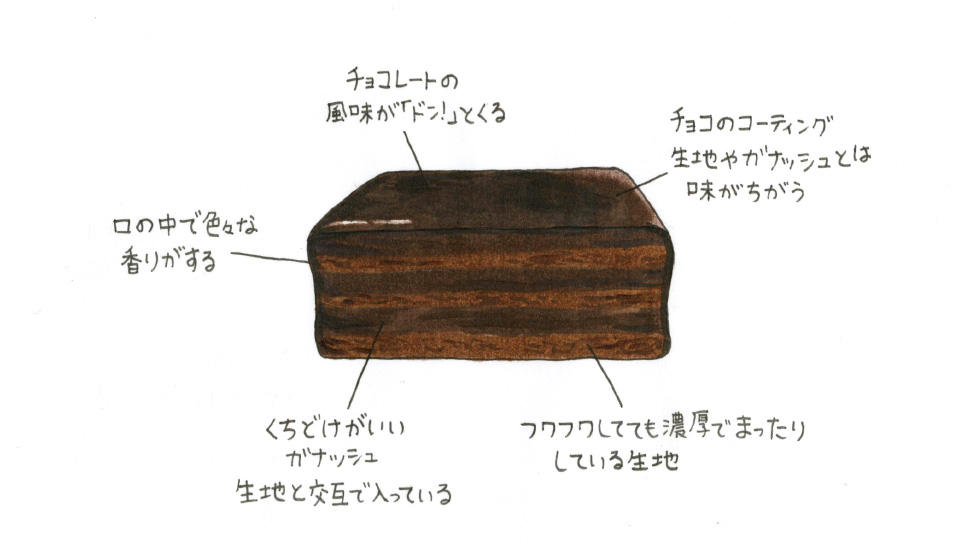 チョコレートの
風味が「ドン!」とくる
チョコのコーティング
生地やガナッシュとは
味がちがう
口の中で色々な
香りがする
くちどけがいい
ガナッシュ
生地と交互で入っている
フワフワしてても濃厚でまったり
している生地